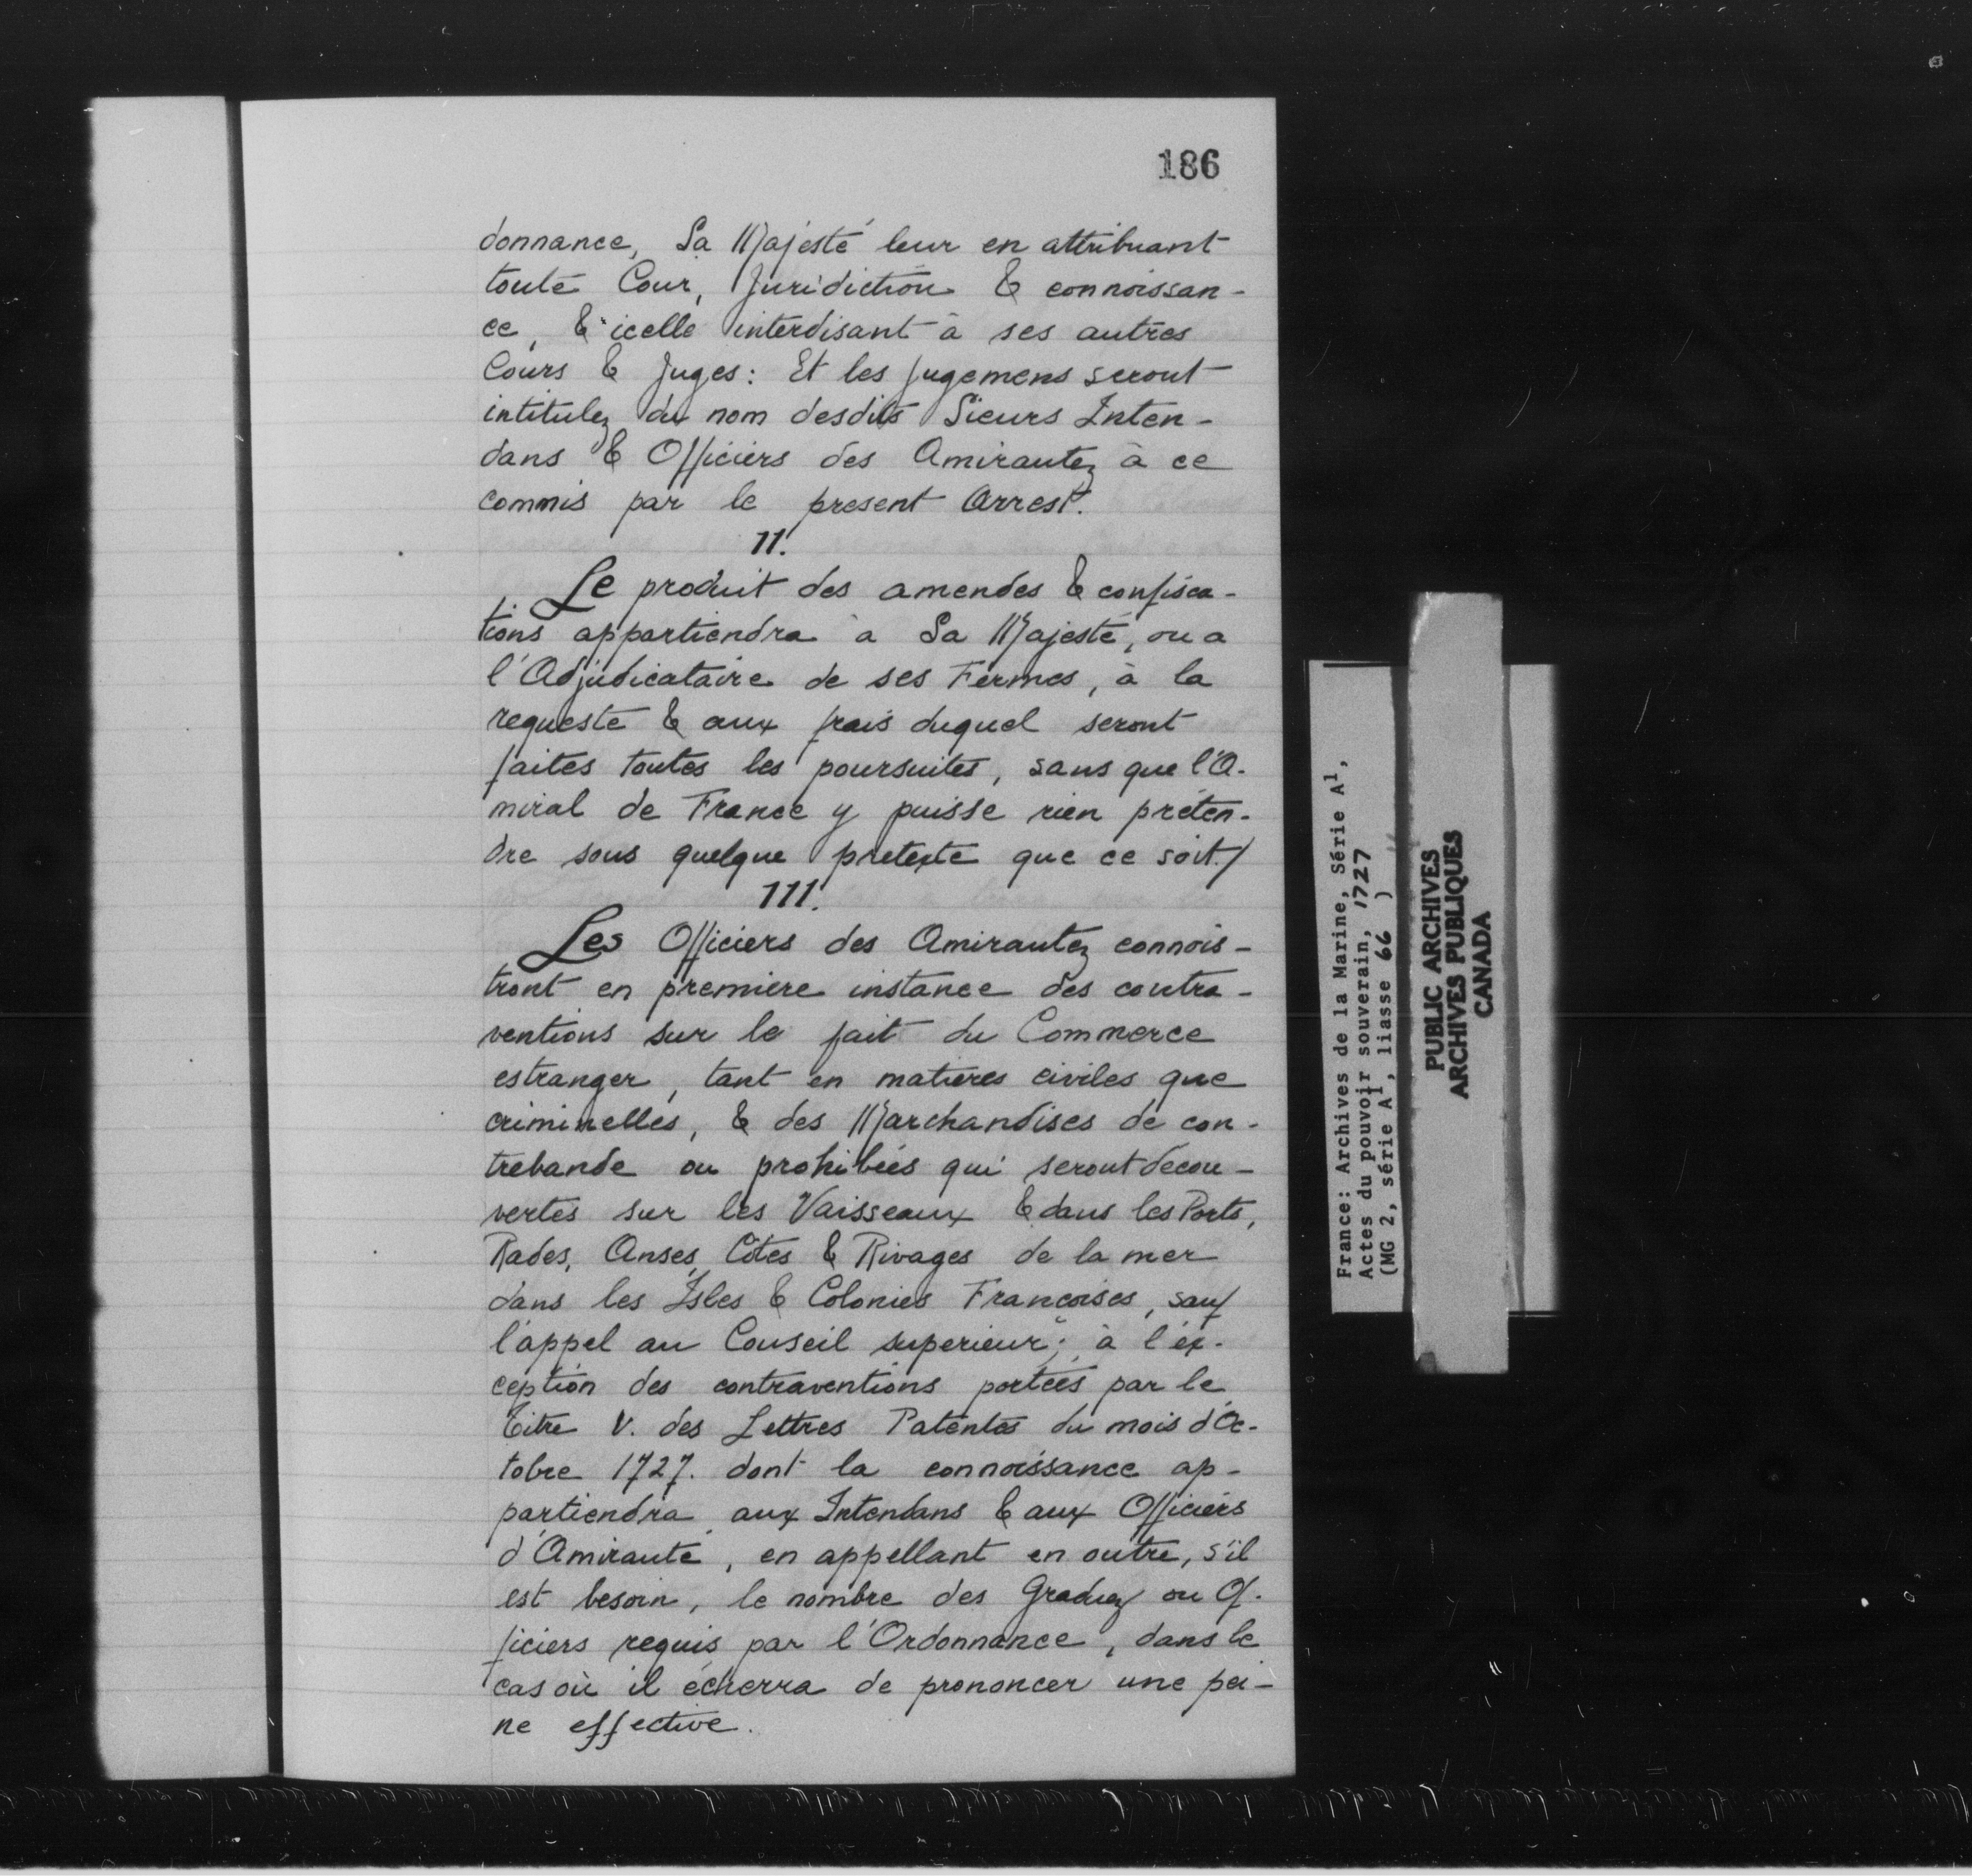 186
donnance, Sa Majesté leur en attribuant
toute Cour, Juridiction & connoissan-
ce, & icelle interdisant à ses autres
Cours & Juges: Et les Jugemens seront
intitulez du nom desdits Sieurs Inten-
dans & Officiers des Amirautez à ce
commis par le present Arrest.
11.
Le produit des amendes & confisca-
tions appartiendra à Sa Majesté, ou a
l'Adjudicataire de ses Fermes, à la
requeste & aux frais duquel seront
faites toutes les poursuites, sans que l'A-
miral de France y puisse rien préten-
dre sous quelque pretexte que ce soit./
111.
Les Officiers des Amirautez connois-
tront en premiere instance des contra-
ventions sur le fait du Commerce
estranger, tant en matieres civiles que
criminelles, & des Marchandises de con-
trebande ou prohibées qui seront décou-
vertes sur les Vaisseaux & dans les Ports,
Rades, Anses, Côtes & Rivages de la mer
dans les Isles & Colonies Francoises, sauf
l'appel au Conseil superieur; à l'éx-
ception des contraventions portées par le
titre V. des Lettres Patentes du mois d'Oc-
tobre 1727. dont la connoissance ap-
partiendra aux Intendans & aux Officiers
d'Amirauté, en appellant en outre, s'il
est besoin, le nombre des Graduez ou Of-
ficiers requis par l'Ordonnance, dans le
cas où il écherra de prononcer une pei-
ne effective.
France: Archives de la Marine, Série A1,
Actes du pouvoir souverain, 1727
(MG 2, série A1, liasse 66 )
PUBLIC ARCHIVES
ARCHIVES PUBLIQUES
CANADA